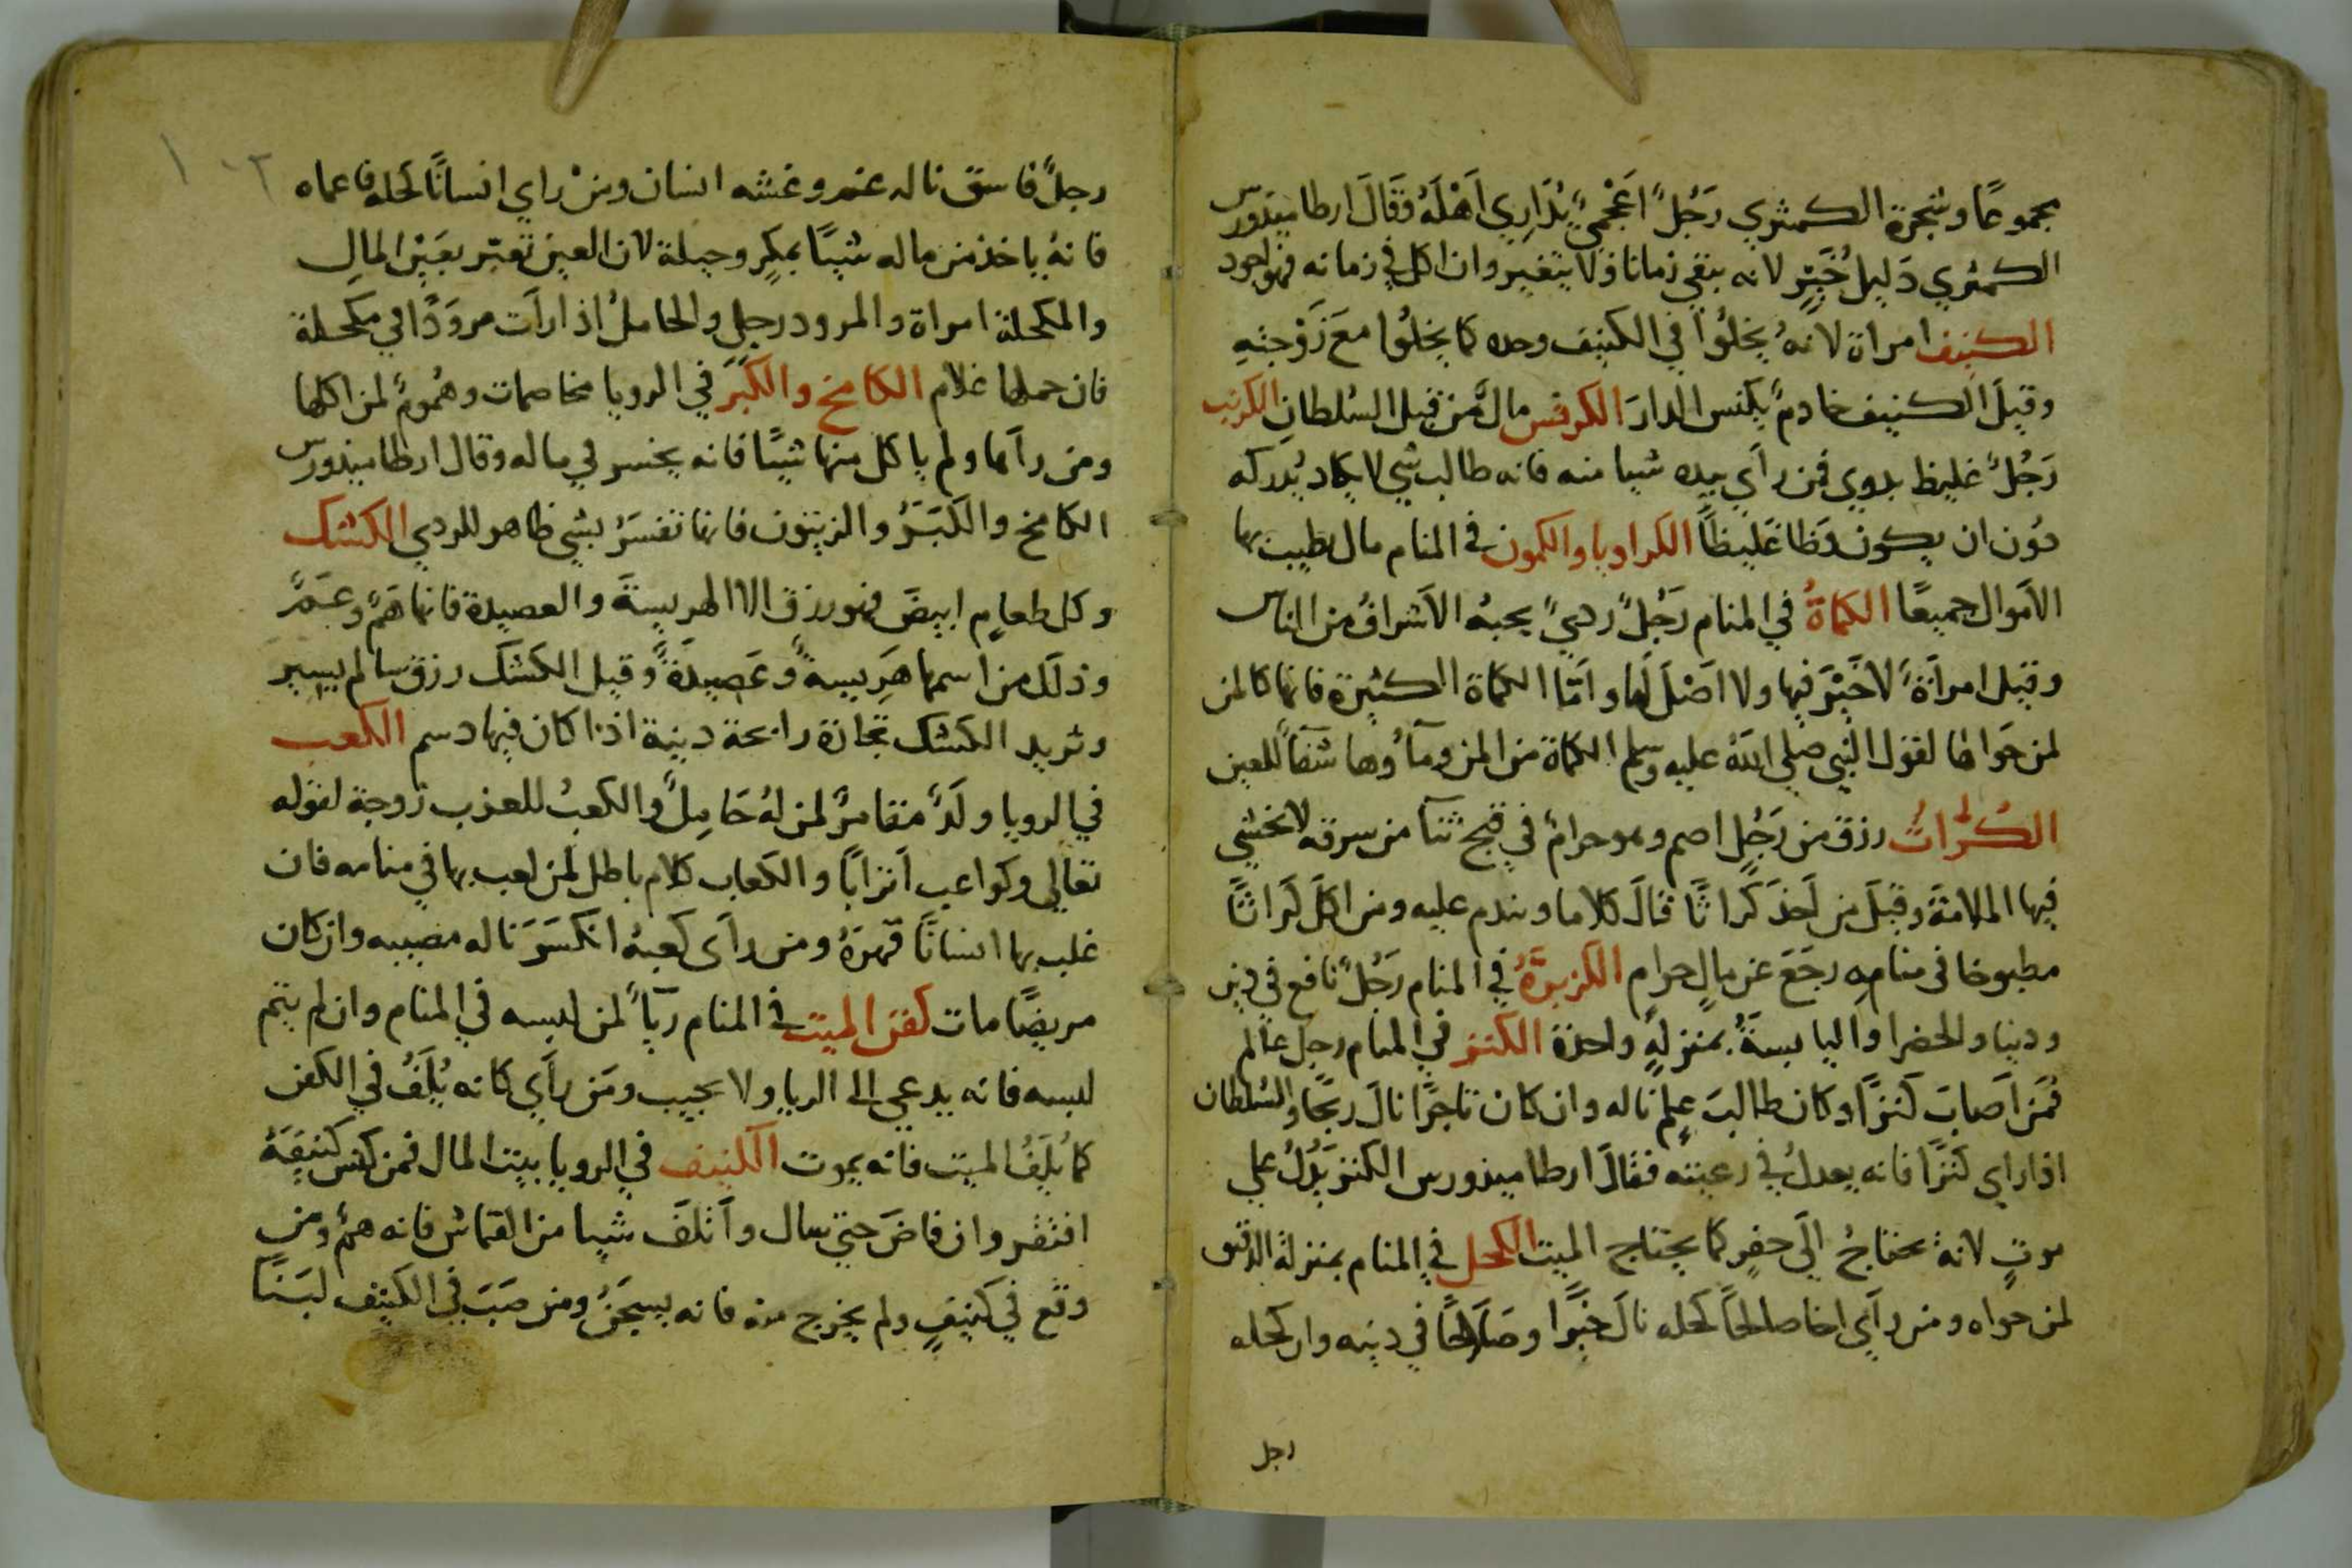 مجموعًا وشجرة الكمثري رَجُلٌ اعَجْميٌ يُدَارِي اَهْلَهُ وَقَالَ ارطاميدورس
الكمثري دَليل خَيرٍ لانه يبقي زمانا ولا يتغير وان اكل في زمانه فهو اجود
الكنيف امراة لانهُ يخلُوا في الكنيف وحده كما يخلُوا معَ زَوْجتهِ
وقيلَ الكنيف خادمٌ يكنس الدارَ الكرفس مالٌ من قبل السُلطان الكرنب
رَجُلٌ غليظ بدوي فمن رأي بيده شيا منه فانه طالب شي لا يكاد يُدركه
دوُن ان يكون فظا غَليظاً الكراويا والكمون في المنام مال يطيب بها
الاَموال جميعًا الكماةُ في المنام رَجُلٌ ردىٌ يحبهُ الاَشرافُ من الناس
وقيل امراَةٌ لاَ خَيْرَ فيها ولا اصْلَ لَها واَمّا الكماة الكثيرة فانها كالمن
لمن حَواها لقول النبي صلي اللهُ عليه وسلم الكماة من المن ومآؤها شفآً للعين
الكُراثُ رزق من رَجُلٍ اصم وهو حرامٌ في قبح ثنآ من سرقه لا نخشي
فيها الملامَةَ وقيلَ من اَخذَ كَراثًا قالَ كلاما ويندم عليه ومن اكلَ كَراثًا
مطبوخا في منامِهِ رجَعَ عن مالٍ حرام الكزبرَةُ في المنام رَجُلٌ نافع في دين
ودنيا والخضرا واليابسةَُ بمنزلهٍ واحدة الكنز في المنام رجل عالم
فَمَن اَصابَ كَنزًا وكان طالبَ عِلمٍ ناله وان كان تاجرًا نالَ ربحًا والسُلطان
اذا راي كَنزًا فانه يعدلُ في رعيته فقالَ ارطاميذورس الكنز يَدُلُ علي
موتٍ لانهُ محتاجُ الَي حفرٍ كما يحتاج الميت الكحل في المنام بمنزلة الدقيق
لمن حواه ومن رآي اخا صالحًا كحله نالَ خَيرًا وصَلاحًا في دينه وان كحله
رجل
١٠٣
رجلٌ فاسق ناله غم وغشه انسان ومَنْ راي انسانًا كحله فاعماه
فانهُ ياخذ من ماله شيئًا بمكرٍ وحيلة لان العين تعبّر بعَيْن المالِ
والمكحلة امراة والمرود رجل والحاملُ اذا راَت مروَدًا في مكحلة
فان حملها غلام الكامخ والكَبَرَ في الرويا مخاصمات وهُمومٌ لمن اكلها
ومن رآها ولم ياكل منها شيئًا فانه يخسر في ماله وقال ارطاميدورس
الكامخ والكَبَرُ والزيتون فانها تفسَرُ بشي ظاهر للردي الكشك
وكل طعامٍ ابيضَ فهو رزق الا الهريسةَ والعصيدة فانها هَمٌ وغَمٌ
وذلَك من اسمها هَرِيسةً وعَصيدَةً وقيل الكشك رزق سالم يسير
وثريد الكشك تجارة رابحة دينية اذا كان فيها دسم الكعب
في الرويا ولَدٌ مقامرٌ لمن لهُ حَامِلٌ والكعبُ للعزب زوجة لقوله
تعَالي وكواعب اَترابًا والكعاب كلام باطل لمن لعب بها في منامه فان
غلب بها انسانًا قهرَهُ ومن رآى كعبهُ انكسَرَ ناله مصيبه وان كان
مريضًا مات كفن الميت في المنام رياً لمن لبسه في المنام وان لم يتم
لبسه فانه يدعي الى الريا ولا يجيب ومَن رآَي كانه يُلَفُ في الكفن
كما يُلَفُ الميت فانه يموت الكنيف في الرويا بيت المال فمن كنس كنيفَهُ
افتقر وان فاضَ حتي سال واَتلَفَ شيا من القماش فانه همٌ ومن
وقع في كنيفٍ ولم يخرج منه فانه يسجَنُ ومن صَبَ في الكنيف لبَنًا